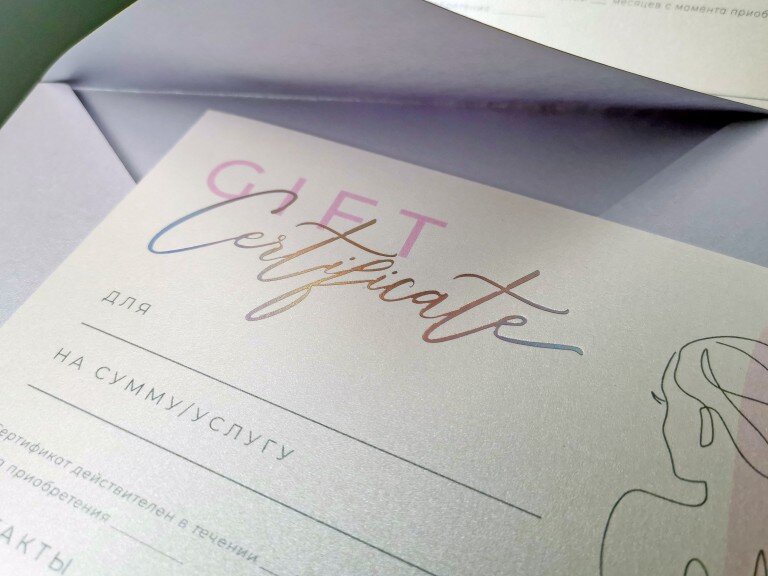 месяцев с момента
GIFT
Certificate
ДЛЯ
НА СУММУ/УСЛУГУ
Сертификат действителен в течении
приобретения